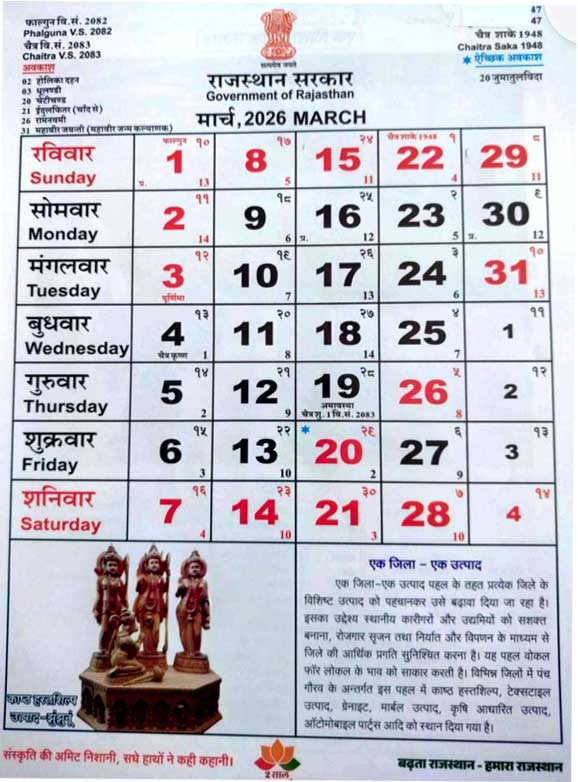 फाल्गुन वि.सं. 2082
Phalguna V.S. 2082
चैत्र वि.सं. 2083
Chaitra V.S. 2083
अवकाश
02 होलिका दहन
03 धूलण्डी
20 चेटीचण्ड
21 ईदुलफितर (चाँद से)
26 रामनवमी
31 महावीर जयन्ती (महावीर जन्म कल्याणक)
सत्यमेव जयते
राजस्थान सरकार
Government of Rajasthan
मार्च, 2026 MARCH
47
47
चैत्र शाके 1948
Chaitra Saka 1948
* ऐच्छिक अवकाश
20 जुमातुलविदा
रविवार Sunday
फाल्गुन १० 1 प्र. 13
१७ 8 5
२४ 15 11
चैत्र शाके 1948 १ 22 4
८ 29 11
सोमवार Monday
११ 2 14
१८ 9 6
२५ 16 प्र. 12
२ 23 5
९ 30 प्र. 12
मंगलवार Tuesday
१२ 3 पूर्णिमा
१९ 10 7
२६ 17 13
३ 24 6
१० 31 13
बुधवार Wednesday
१३ 4 चैत्र कृष्ण 1
२० 11 8
२७ 18 14
४ 25 7
११ 1
गुरुवार Thursday
१४ 5 2
२१ 12 9
२८ 19 अमावस्या
चैत्र शु. 1 वि.सं. 2083
५ 26 8
१२ 2
शुक्रवार Friday
१५ 6 3
२२ 13 10
* २९ 20 2
६ 27 9
१३ 3
शनिवार Saturday
१६ 7 4
२३ 14 10
३० 21 3
७ 28 10
१४ 4
काष्ठ हस्तशिल्प
उत्पाद-झुंझुनूं
एक जिला – एक उत्पाद
एक जिला–एक उत्पाद पहल के तहत प्रत्येक जिले के
विशिष्ट उत्पाद को पहचानकर उसे बढ़ावा दिया जा रहा है।
इसका उद्देश्य स्थानीय कारीगरों और उद्यमियों को सशक्त
बनाना, रोजगार सृजन तथा निर्यात और विपणन के माध्यम से
जिले की आर्थिक प्रगति सुनिश्चित करना है। यह पहल वोकल
फॉर लोकल के भाव को साकार करती है। विभिन्न जिलों में पंच
गौरव के अन्तर्गत इस पहल में काष्ठ हस्तशिल्प, टेक्सटाइल
उत्पाद, ग्रेनाइट, मार्बल उत्पाद, कृषि आधारित उत्पाद,
ऑटोमोबाइल पार्ट्स आदि को स्थान दिया गया है।
संस्कृति की अमिट निशानी, सधे हाथों ने कही कहानी।
2 साल
बढ़ता राजस्थान - हमारा राजस्थान